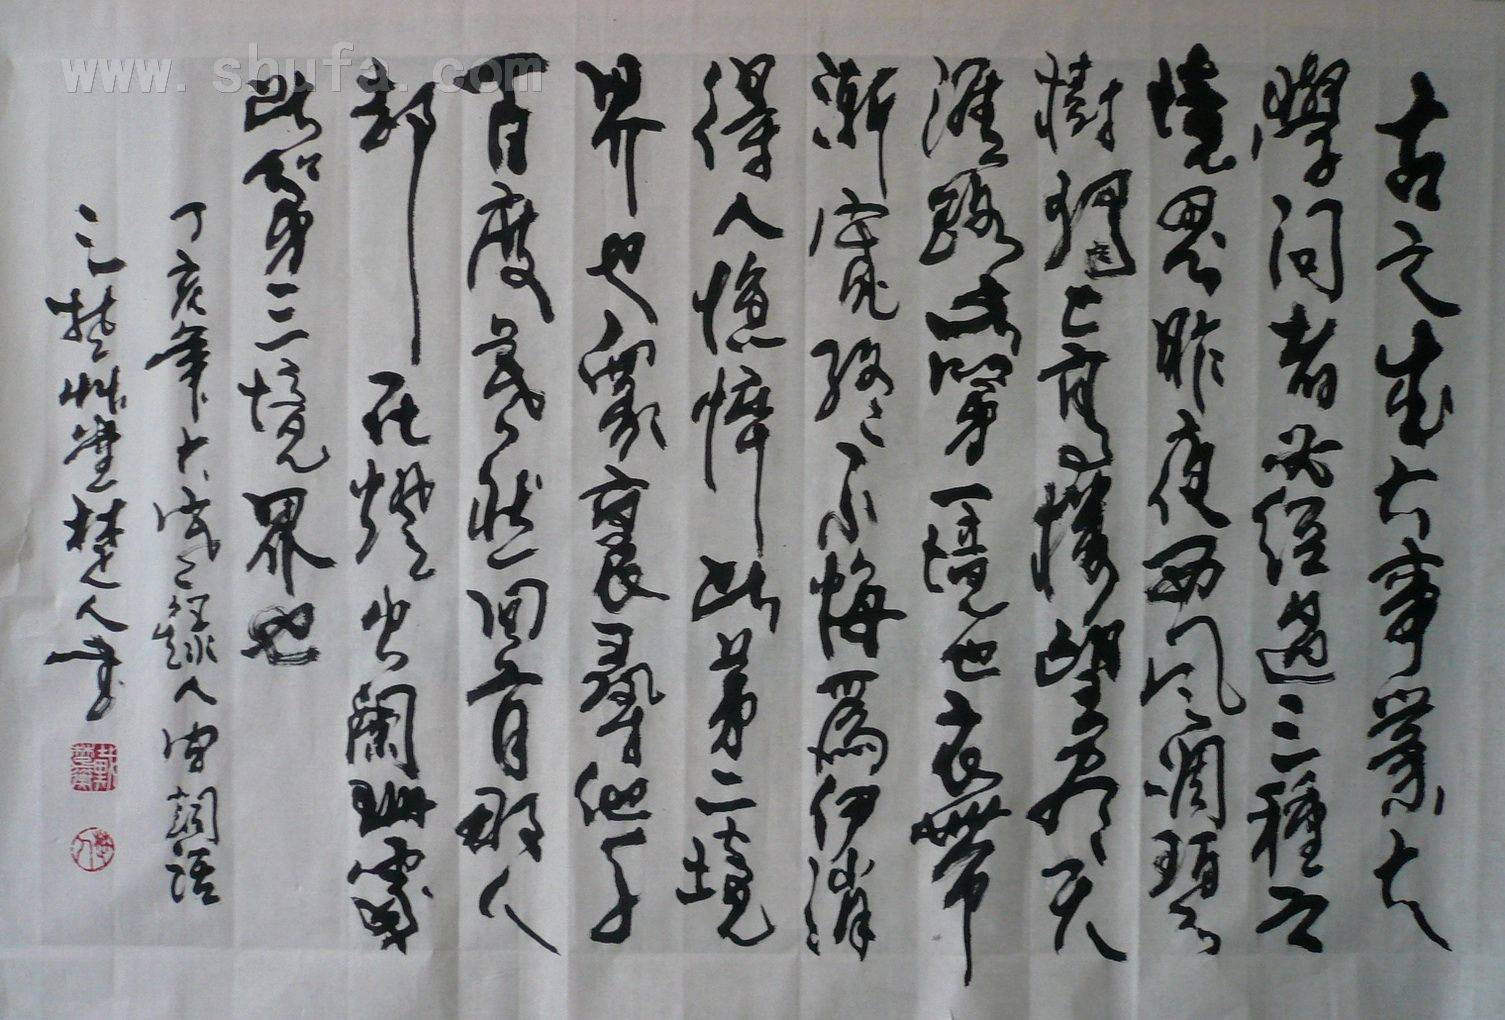 古之成大事業大
學問者必經過三種之
境界昨夜西風凋碧
樹獨上高樓望盡天
涯路此第一境也衣帶
漸寬終不悔為伊消
得人憔悴此第二境
界也眾裏尋他千
百度驀然回首那人
却在燈火闌珊處
此第三境界也
丁亥年大人間詞語
三楚艸堂楚人書
楚人
www.shufa.com